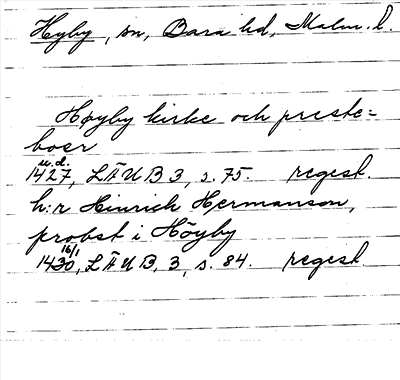 Hyby, sn, Bara hd, Malm. l.
Høyby kirke och preste=
boer
u.d.
1427, LÄUB 3, s. 75. regest.
h:r Hinrich Hermanson,
probst i Höyby
16/1
1430, LÄUB, 3, s. 84. regest.